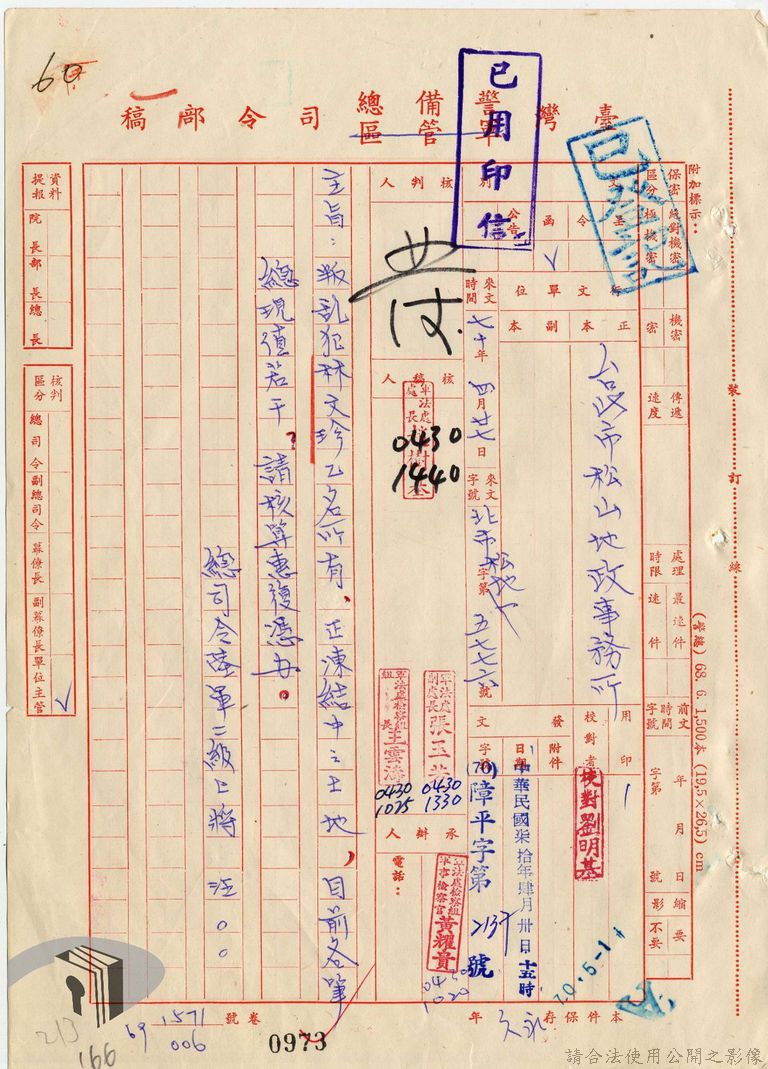 60
臺灣警備總司令部稿
軍管區
已用印信
附加標示：
保密區分
絕對機密
極機密
機密
密
傳遞速度
處理時限
最速件
速件
前文時間字號
年月日
字第
號
縮影
要
不要
文別
令
函
公告
行文單位
正本
副本
台北市松山地政事務所
用印
校對者
校對劉明基
發文
附件
日期
中華民國柒拾年肆月卅日十五時
字號
(70)障平字第2137號
70.5.-1
來文時間
七十年四月廿七日
來文字號
北市松地一字第五七七六號
核判人
核稿人
軍法處處長
0430
1440
軍法處副處長張玉芳
0430
1330
軍法處檢察組組長王雲濤
0430
1025
承辦人
軍法處檢察組軍事檢察官黃耀貴
0430
1020
電話：
主旨：叛亂犯林文珍乙名所有、正凍結中之土地，目前各筆
總現值若干？請核算惠復憑办。
總司令陸軍二級上將 汪〇〇
資料提報
院長
部長
總長
核判區分
總司令
副總司令
幕僚長
副幕僚長
單位主管
裝訂線
(警總) 68. 6. 1,500本 (19,5×26,5) cm
本件保存永久年
卷號
1571
69
006
0973
213
166
請合法使用公開之影像